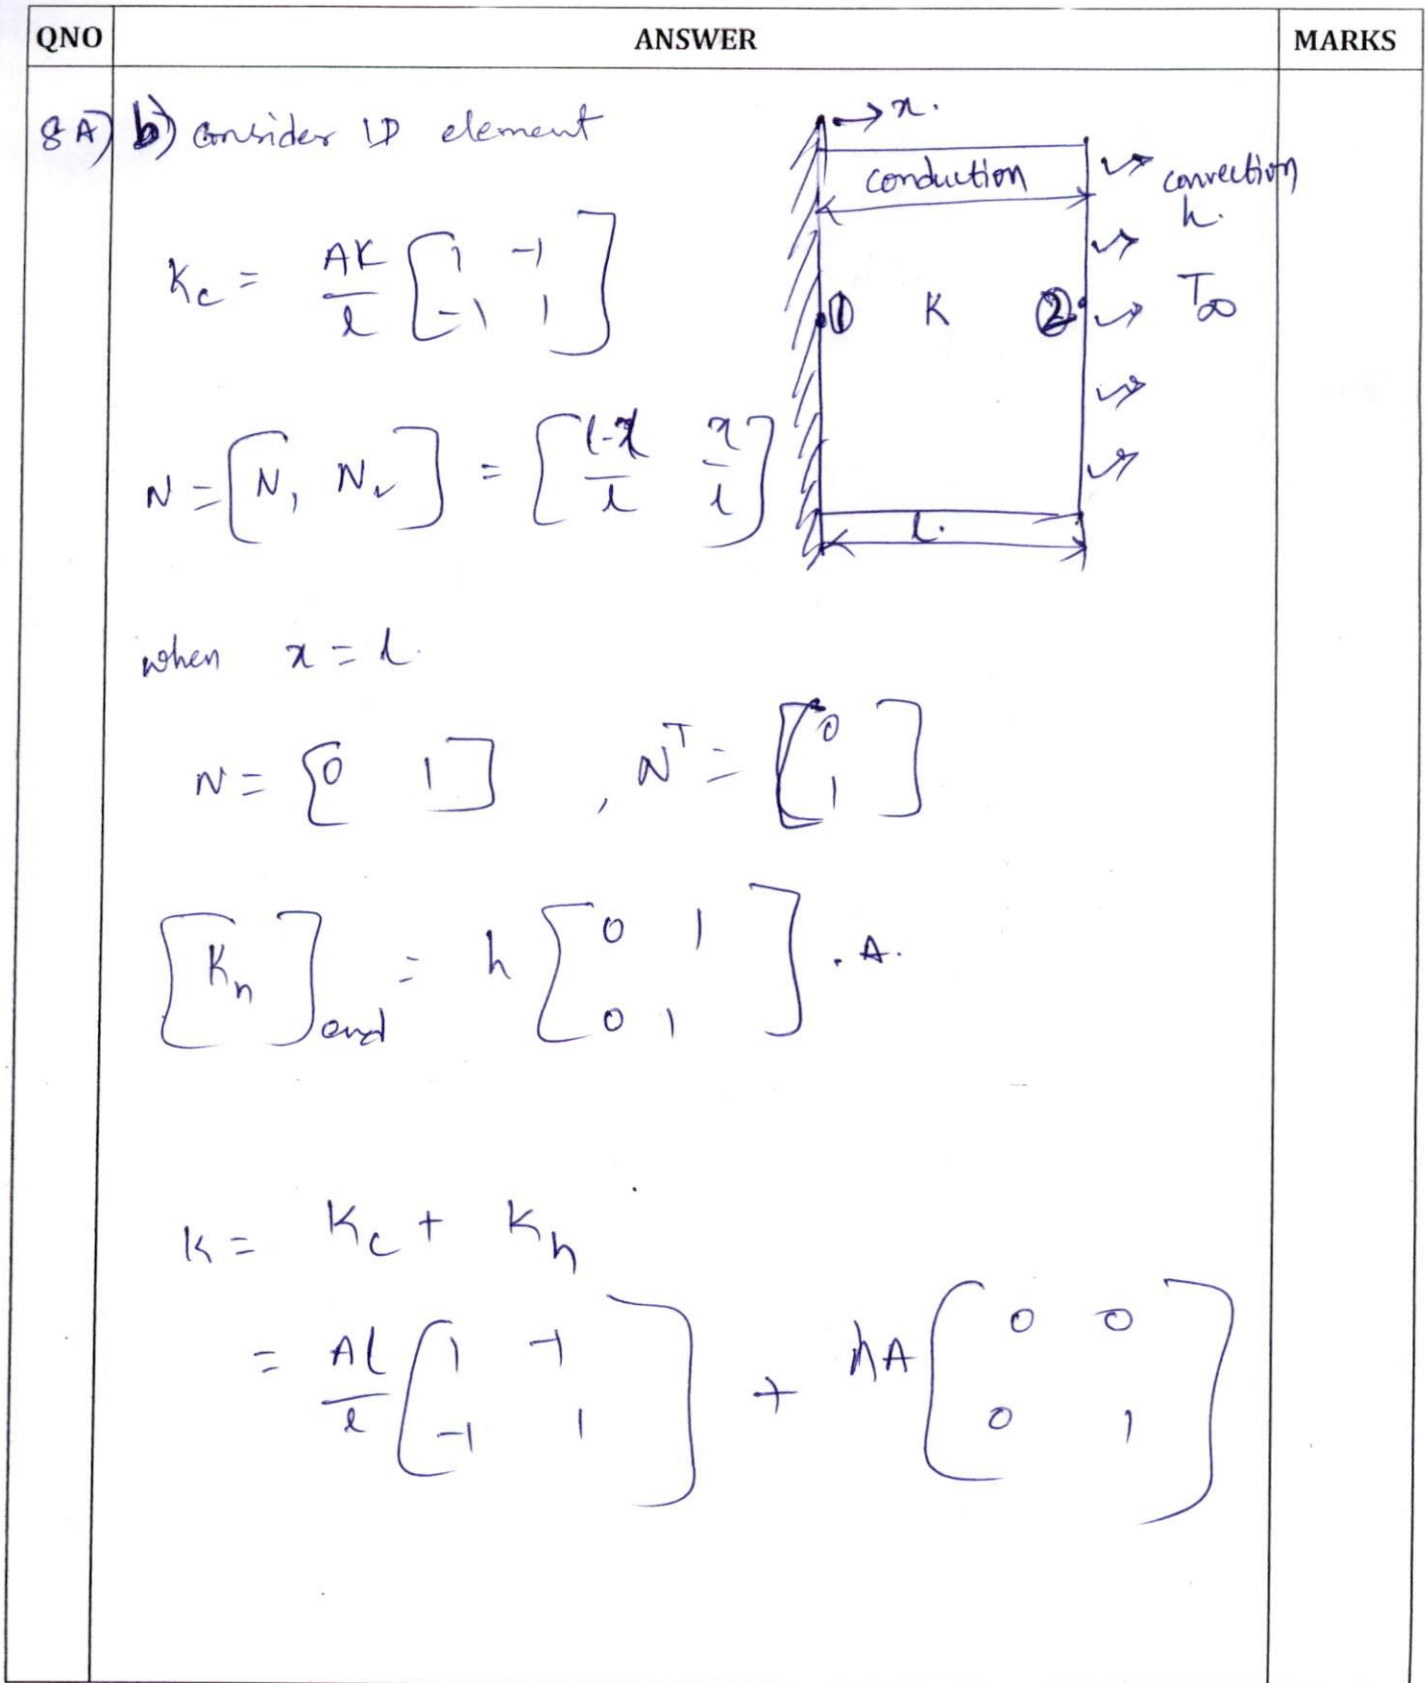 QNO ANSWER MARKS
8A) b) consider 1D element
→ x.
conduction
convection
h.
K_c = AK/l [1 -1; -1 1]
① K ②
T∞
N = [N₁ N₂] = [l-x/l x/l]
L.
when x = l.
N = [0 1] , N^T = [0; 1]
[K_h]end = h [0 1; 0 1] . A.
K = K_c + K_h
= Al/l [1 -1; -1 1] + hA [0 0; 0 1]